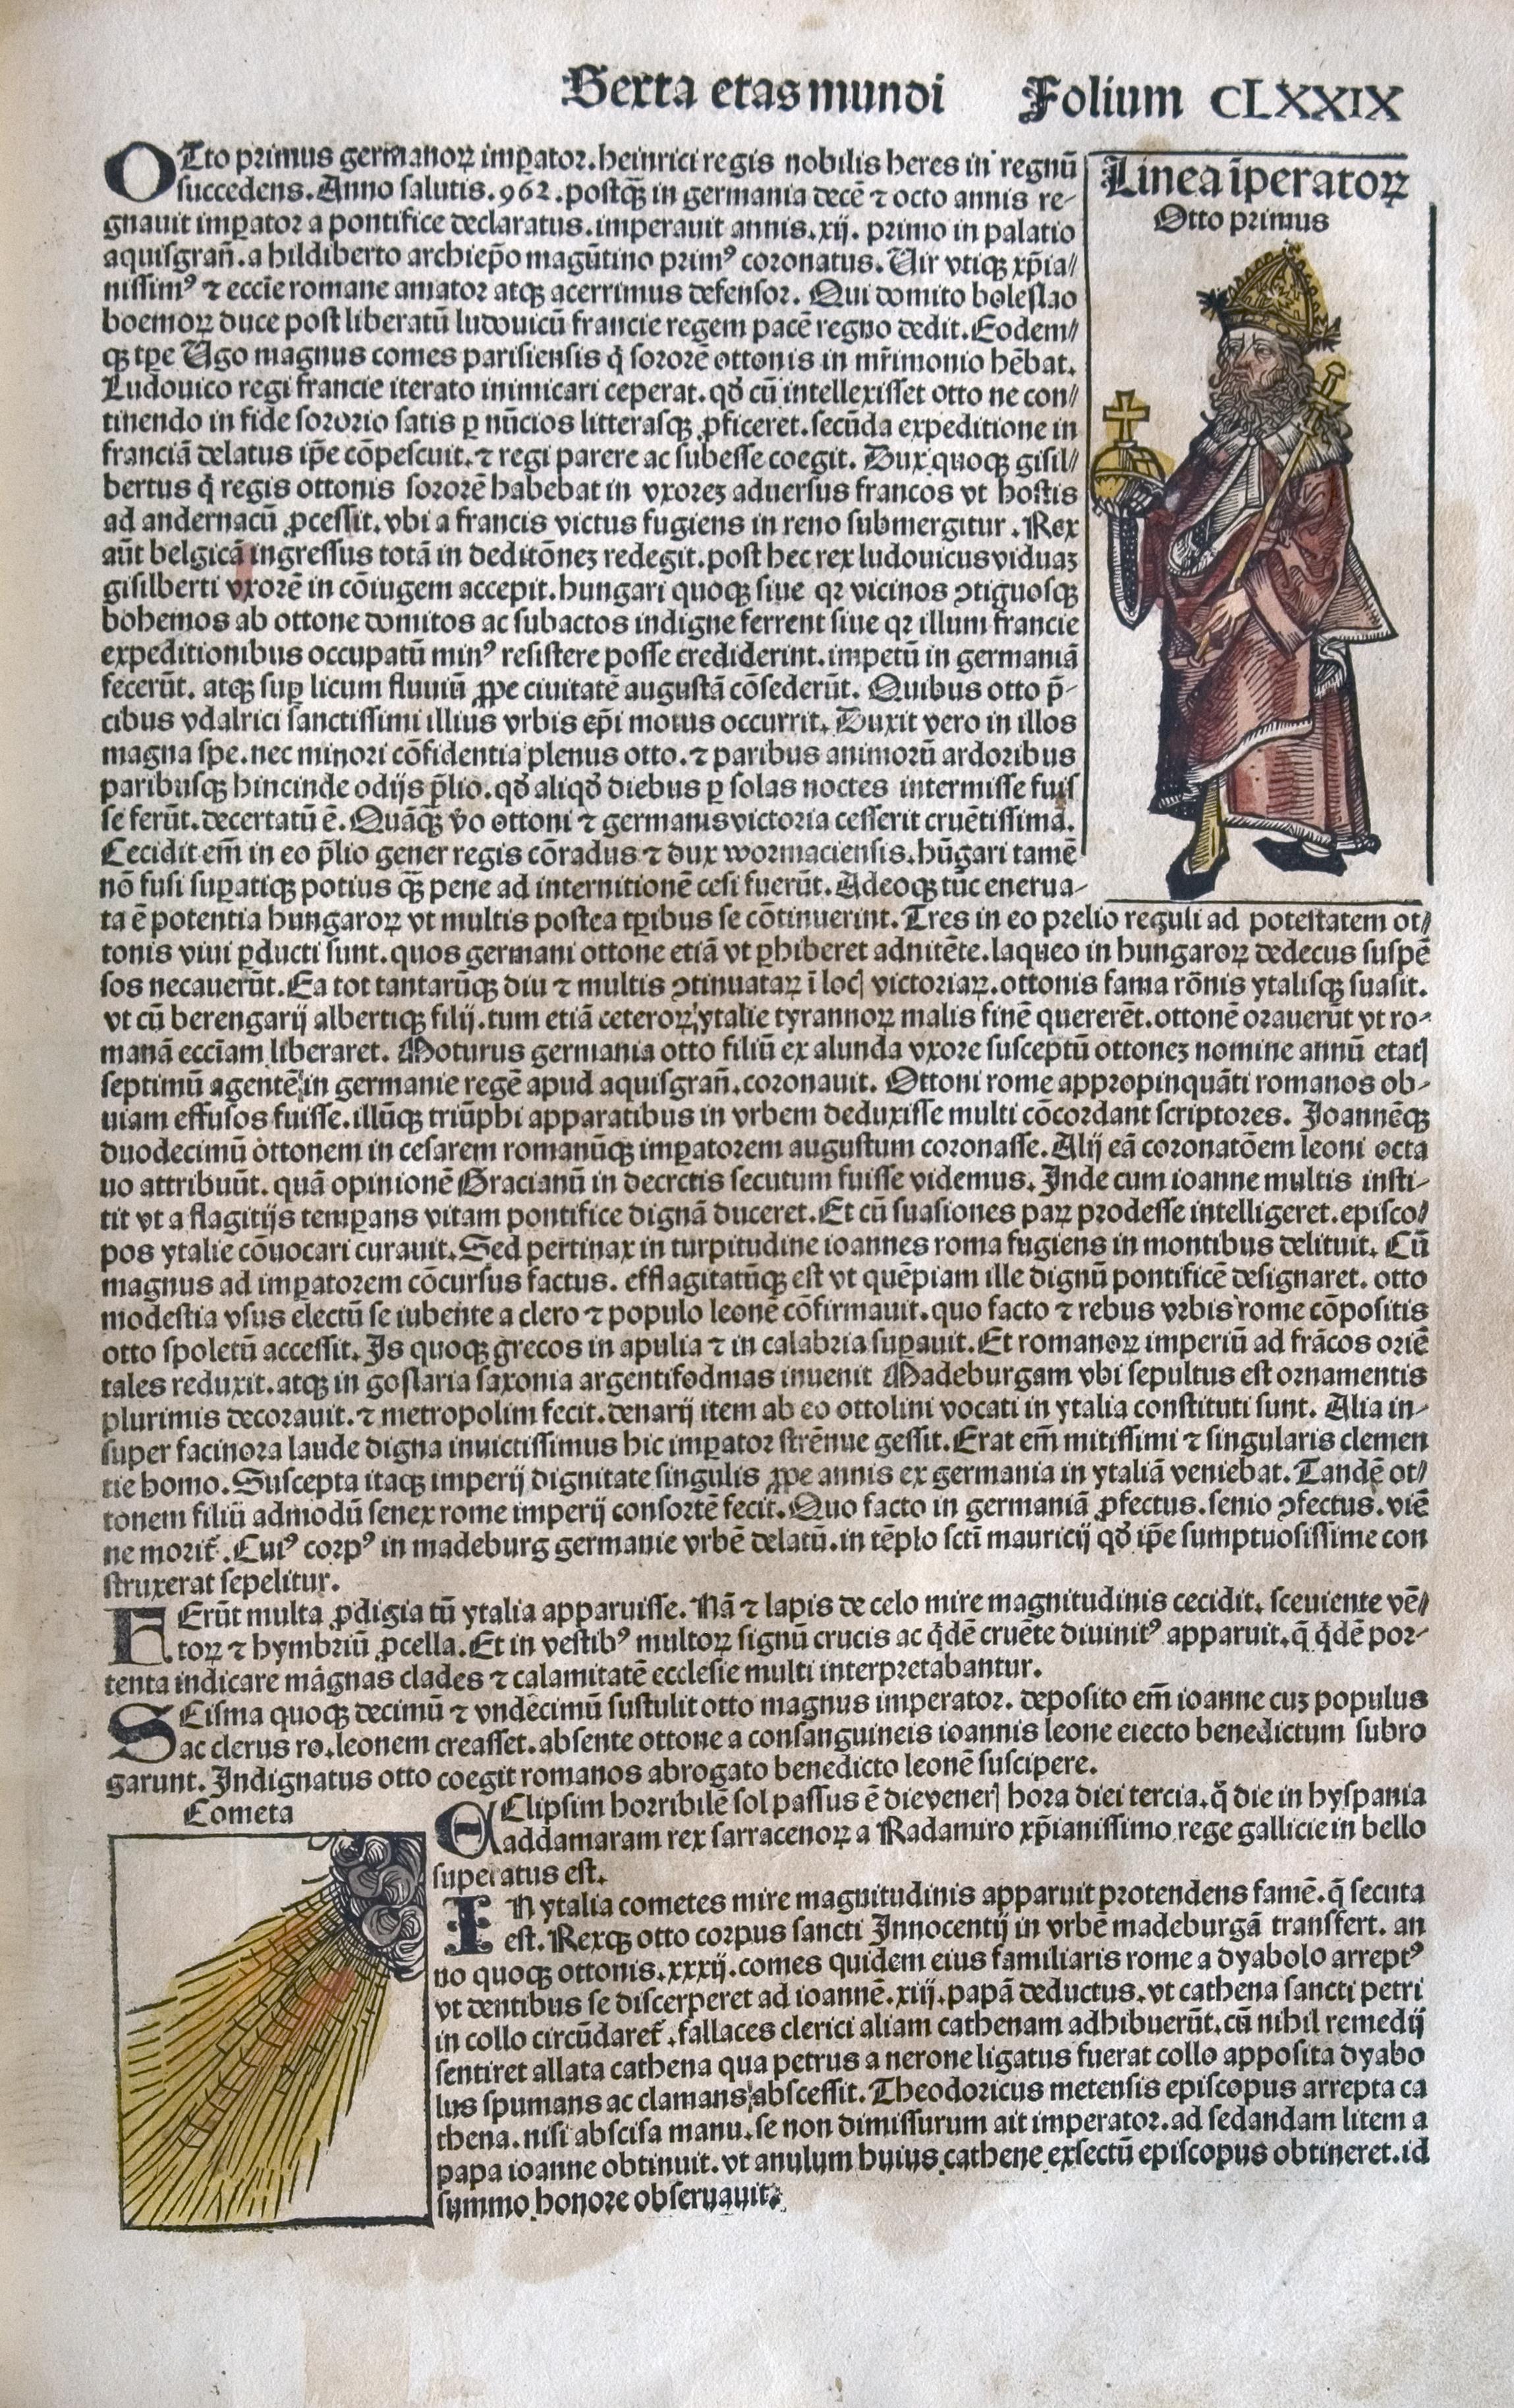 Sexta etas mundi Folium CLXXIX
OTto primus germanoꝝ imꝑator. heinrici regis nobilis heres in regnū
succedens. Anno salutis .962. postqȝ̄ in germania decē ⁊ octo annis re-
gnauit imꝑator a pontifice declaratus. imperauit annis .xij. primo in palatio
aquisgrañ. a hildiberto archiep̄o magūtino primꝰ coronatus. Uir vtiqꝫ xp̄ia/
nissimꝰ ⁊ eccl̄ie romane amator atqꝫ acerrimus defensor. Qui domito boleslao
boemoꝝ duce post liberatū ludouicū francie regem pacē regno dedit. Eodem/
qꝫ tꝑe Ugo magnus comes parisiensis q̇ sororē ottonis in mr̄imonio hēbat.
Ludouico regi francie iterato inimicari ceperat. qđ cū intellexisset otto ne con/
tinendo in fide sororio satis ꝑ nūcios litterasqꝫ ꝓficeret. secūda expeditione in
franciā delatus ip̄e cōpescuit. ⁊ regi parere ac subesse coegit. Dux quoqꝫ gisil/
bertus q̇ regis ottonis sororē habebat in vxoreꝫ aduersus francos vt hostis
ad andernacū ꝓcessit. vbi a francis victus fugiens in reno submergitur. Rex
aūt belgicā ingressus totā in deditōneꝫ redegit. post hec rex ludouicus viduaꝫ
gisilberti vxorē in cōiugem accepit. hungari quoqꝫ siue qꝛ vicinos ꝯtiguosqꝫ
bohemos ab ottone domitos ac subactos indigne ferrent siue qꝛ illum francie
expeditionibus occupatū minꝰ resistere posse crediderint. impetū in germaniā
fecerūt. atqꝫ suꝑ licum fluuiū ꝓpe ciuitatē augustā cōsederūt. Quibus otto p̄-
cibus vdalrici sanctissimi illius vrbis ep̄i motus occurrit. Duxit vero in illos
magna spe. nec minori cōfidentia plenus otto. ⁊ paribus animorū ardoribus
paribusqꝫ hincinde odijs p̄lio. qđ aliqđ diebus ꝑ solas noctes intermisse fuis
se ferūt. decertatū ē. Quāqȝ̄ v̄o ottoni ⁊ germanis victoria cesserit cruētissima.
Cecidit em̄ in eo p̄lio gener regis cōradus ⁊ dux wormaciensis. hūgari tamē
nō fusi suꝑatiqꝫ potius qȝ̄ pene ad internitionē cesi fuerūt. Adeoqꝫ tūc enerua-
ta ē potentia hungaroꝝ vt multis postea tꝑibus se cōtinuerint. Tres in eo prelio reguli ad potestatem ot/
tonis viui ꝑducti sunt. quos germani ottone etiā vt ꝑhiberet adnitēte. laqueo in hungaroꝝ dedecus suspē
sos necauerūt. Ea tot tantarūqꝫ diu ⁊ multis ꝯtinuataꝝ ī locꝭ victoriaꝝ. ottonis fama rōnis ytalisqꝫ suasit.
vt cū berengarij albertiqꝫ filij. tum etiā ceteroꝝ ytalie tyrannoꝝ malis finē quererēt. ottonē orauerūt vt ro-
manā eccl̄iam liberaret. Moturus germania otto filiū ex alunda vxore susceptū ottoneꝫ nomine annū etatꝭ
septimū agentē in germanie regē apud aquisgrañ. coronauit. Ottoni rome appropinquāti romanos ob-
uiam effusos fuisse. illūqꝫ triūphi apparatibus in vrbem deduxisse multi cōcordant scriptores. Joannēqꝫ
duodecimū ottonem in cesarem romanūqꝫ imꝑatorem augustum coronasse. Alij eā coronatōem leoni octa
uo attribuūt. quā opinionē Gracianū in decretis secutum fuisse videmus. Inde cum ioanne multis insti-
tit vt a flagitijs temꝑans vitam pontifice dignā duceret. Et cū suasiones paꝝ prodesse intelligeret. episco/
pos ytalie cōuocari curauit. Sed pertinax in turpitudine ioannes roma fugiens in montibus delituit. Cū
magnus ad imꝑatorem cōcursus factus. efflagitatūqꝫ est vt quēpiam ille dignū pontificē designaret. otto
modestia vsus electū se iubente a clero ⁊ populo leonē cōfirmauit. quo facto ⁊ rebus vrbis rome cōpositis
otto spoletū accessit. Is quoqꝫ grecos in apulia ⁊ in calabria suꝑauit. Et romanoꝝ imperiū ad frācos oriē
tales reduxit. atqꝫ in goslaria saxonia argentifodinas inuenit Madeburgam vbi sepultus est ornamentis
plurimis decorauit. ⁊ metropolim fecit. denarij item ab eo ottolini vocati in ytalia constituti sunt. Alia in-
super facinora laude digna inuictissimus hic imꝑator strēnue gessit. Erat em̄ mitissimi ⁊ singularis clemen
tie homo. Suscepta itaqꝫ imperij dignitate singulis ꝓpe annis ex germania in ytaliā veniebat. Tandē ot/
tonem filiū admodū senex rome imperij consortē fecit. Quo facto in germaniā ꝓfectus. senio ꝯfectus. viē
ne morit̄. Cuiꝰ corpꝰ in madeburg germanie vrbē delatū. in tēplo scti mauricij qđ ip̄e sumptuosissime con
struxerat sepelitur.
FErūt multa ꝓdigia tū ytalia apparuisse. Nā ⁊ lapis de celo mire magnitudinis cecidit. sceuiente vē/
toꝝ ⁊ hymbriū ꝓcella. Et in vestibꝰ multoꝝ signū crucis ac q̇dē cruēte diuinitꝰ apparuit. q̄ q̇dē por-
tenta indicare magnas clades ⁊ calamitatē ecclesie multi interpretabantur.
SCisma quoqꝫ decimū ⁊ vndecimū sustulit otto magnus imperator. deposito em̄ ioanne cuꝫ populus
ac clerus ro. leonem creasset. absente ottone a consanguineis ioannis leone eiecto benedictum subro
garunt. Indignatus otto coegit romanos abrogato benedicto leonē suscipere.
EClipsim horribilē sol passus ē die venerꝭ hora diei tercia. q̄ die in hyspania
addamaram rex sarracenoꝝ a Radamiro xp̄ianissimo rege gallicie in bello
superatus est.
IN ytalia cometes mire magnitudinis apparuit protendens famē. q̄ secuta
est. Rexqꝫ otto corpus sancti Innocentij in vrbē madeburgā transfert. an
no quoqꝫ ottonis .xxxij. comes quidem eius familiaris rome a dyabolo arreptꝰ
vt dentibus se discerperet ad ioannē .xiij. papā deductus. vt cathena sancti petri
in collo circūdaret̄. fallaces clerici aliam cathenam adhibuerūt. cū nihil remedij
sentiret allata cathena qua petrus a nerone ligatus fuerat collo apposita dyabo
lus spumans ac clamans abscessit. Theodoricus metensis episcopus arrepta ca
thena. nisi abscisa manu. se non dimissurum ait imperator. ad sedandam litem a
papa ioanne obtinuit. vt anulum huius cathene exsectū episcopus obtineret. id
summo honore obseruauit.
Linea īperatoꝝ
Otto primus
Cometa